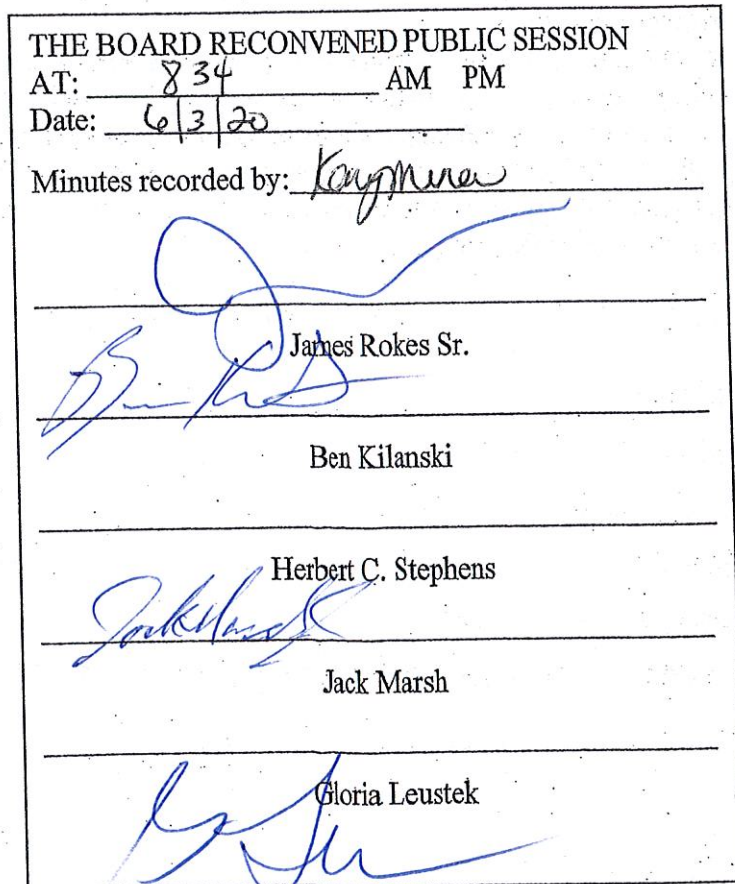 THE BOARD RECONVENED PUBLIC SESSION
AT: 834 AM PM
Date: 6|3|20
Minutes recorded by:
James Rokes Sr.
Ben Kilanski
Herbert C. Stephens
Jack Marsh
Jack Marsh
Gloria Leustek